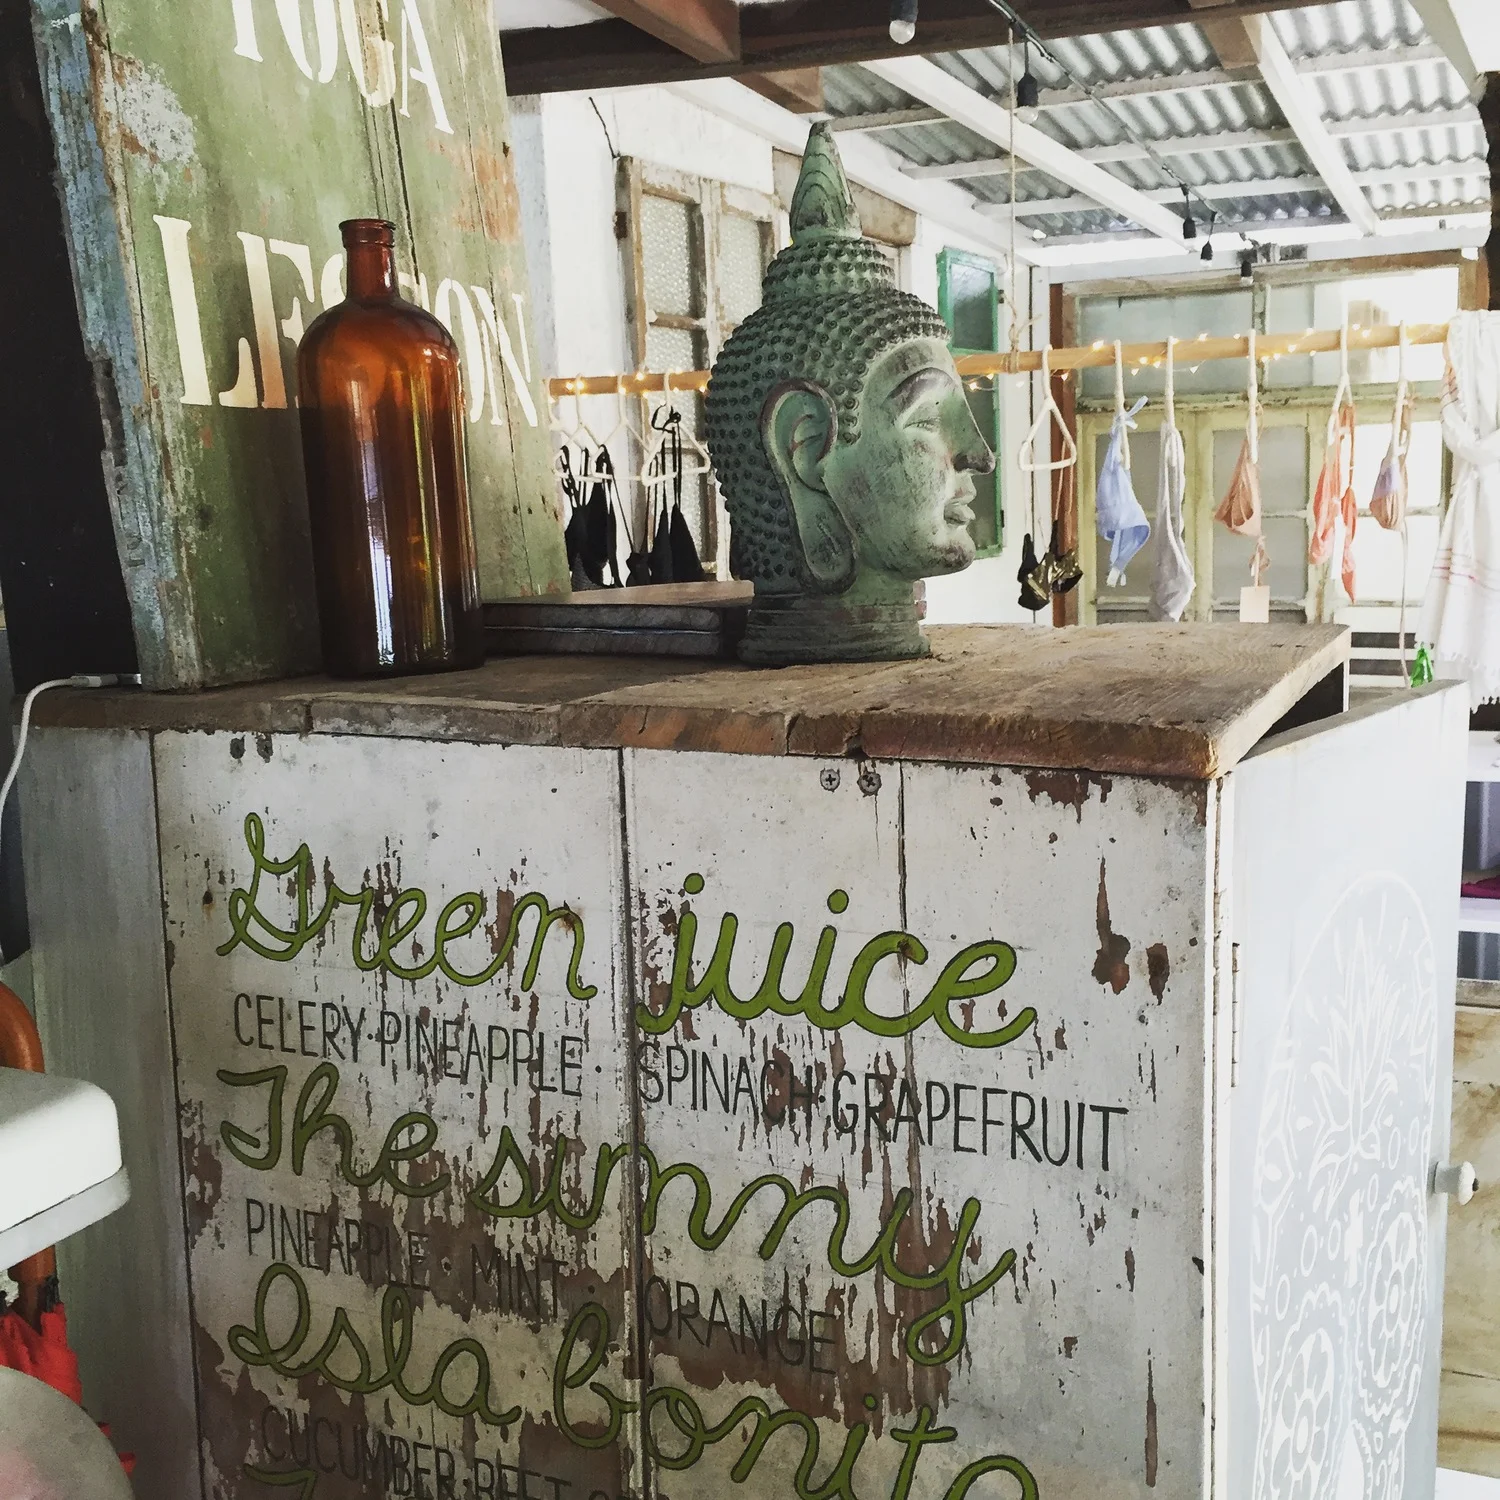 YOGA
LESSON
Green juice
CELERY·PINEAPPLE· SPINACH·GRAPEFRUIT
The sunny
PINEAPPLE · MINT · ORANGE
Isla bonita
CUCUMBER·BEET